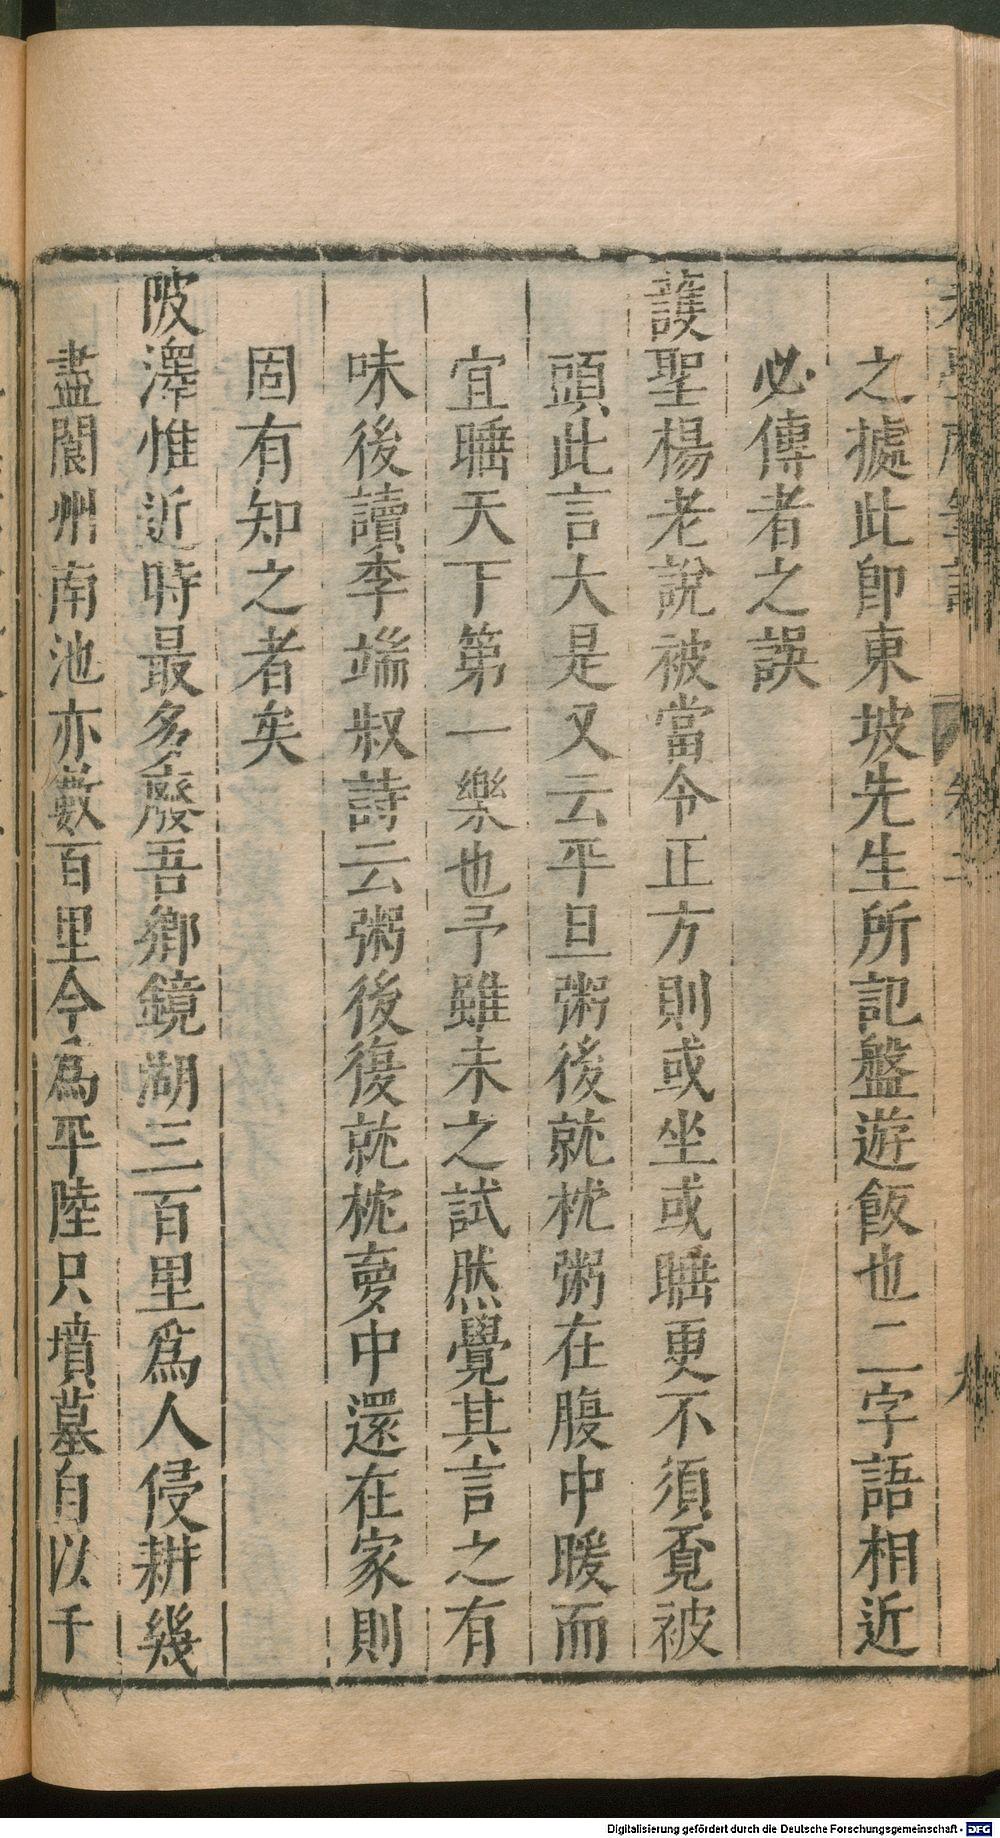 之據此卽東坡先生所記盤遊飯也二字語相近
必傳者之誤
護聖楊老說被當令正方則或坐或睡更不須覔被
頭此言大是又云平旦粥後就枕粥在腹中暖而
宜睡天下第一樂也予雖未之試然覺其言之有
味後讀李端叔詩云粥後復就枕夢中還在家則
固有知之者矣
陂澤惟近時最多廢吾鄉鏡湖三百里爲人侵耕幾
盡閬州南池亦數百里今爲平陸只墳墓自以千
Digitalisierung gefördert durch die Deutsche Forschungsgemeinschaft - DFG